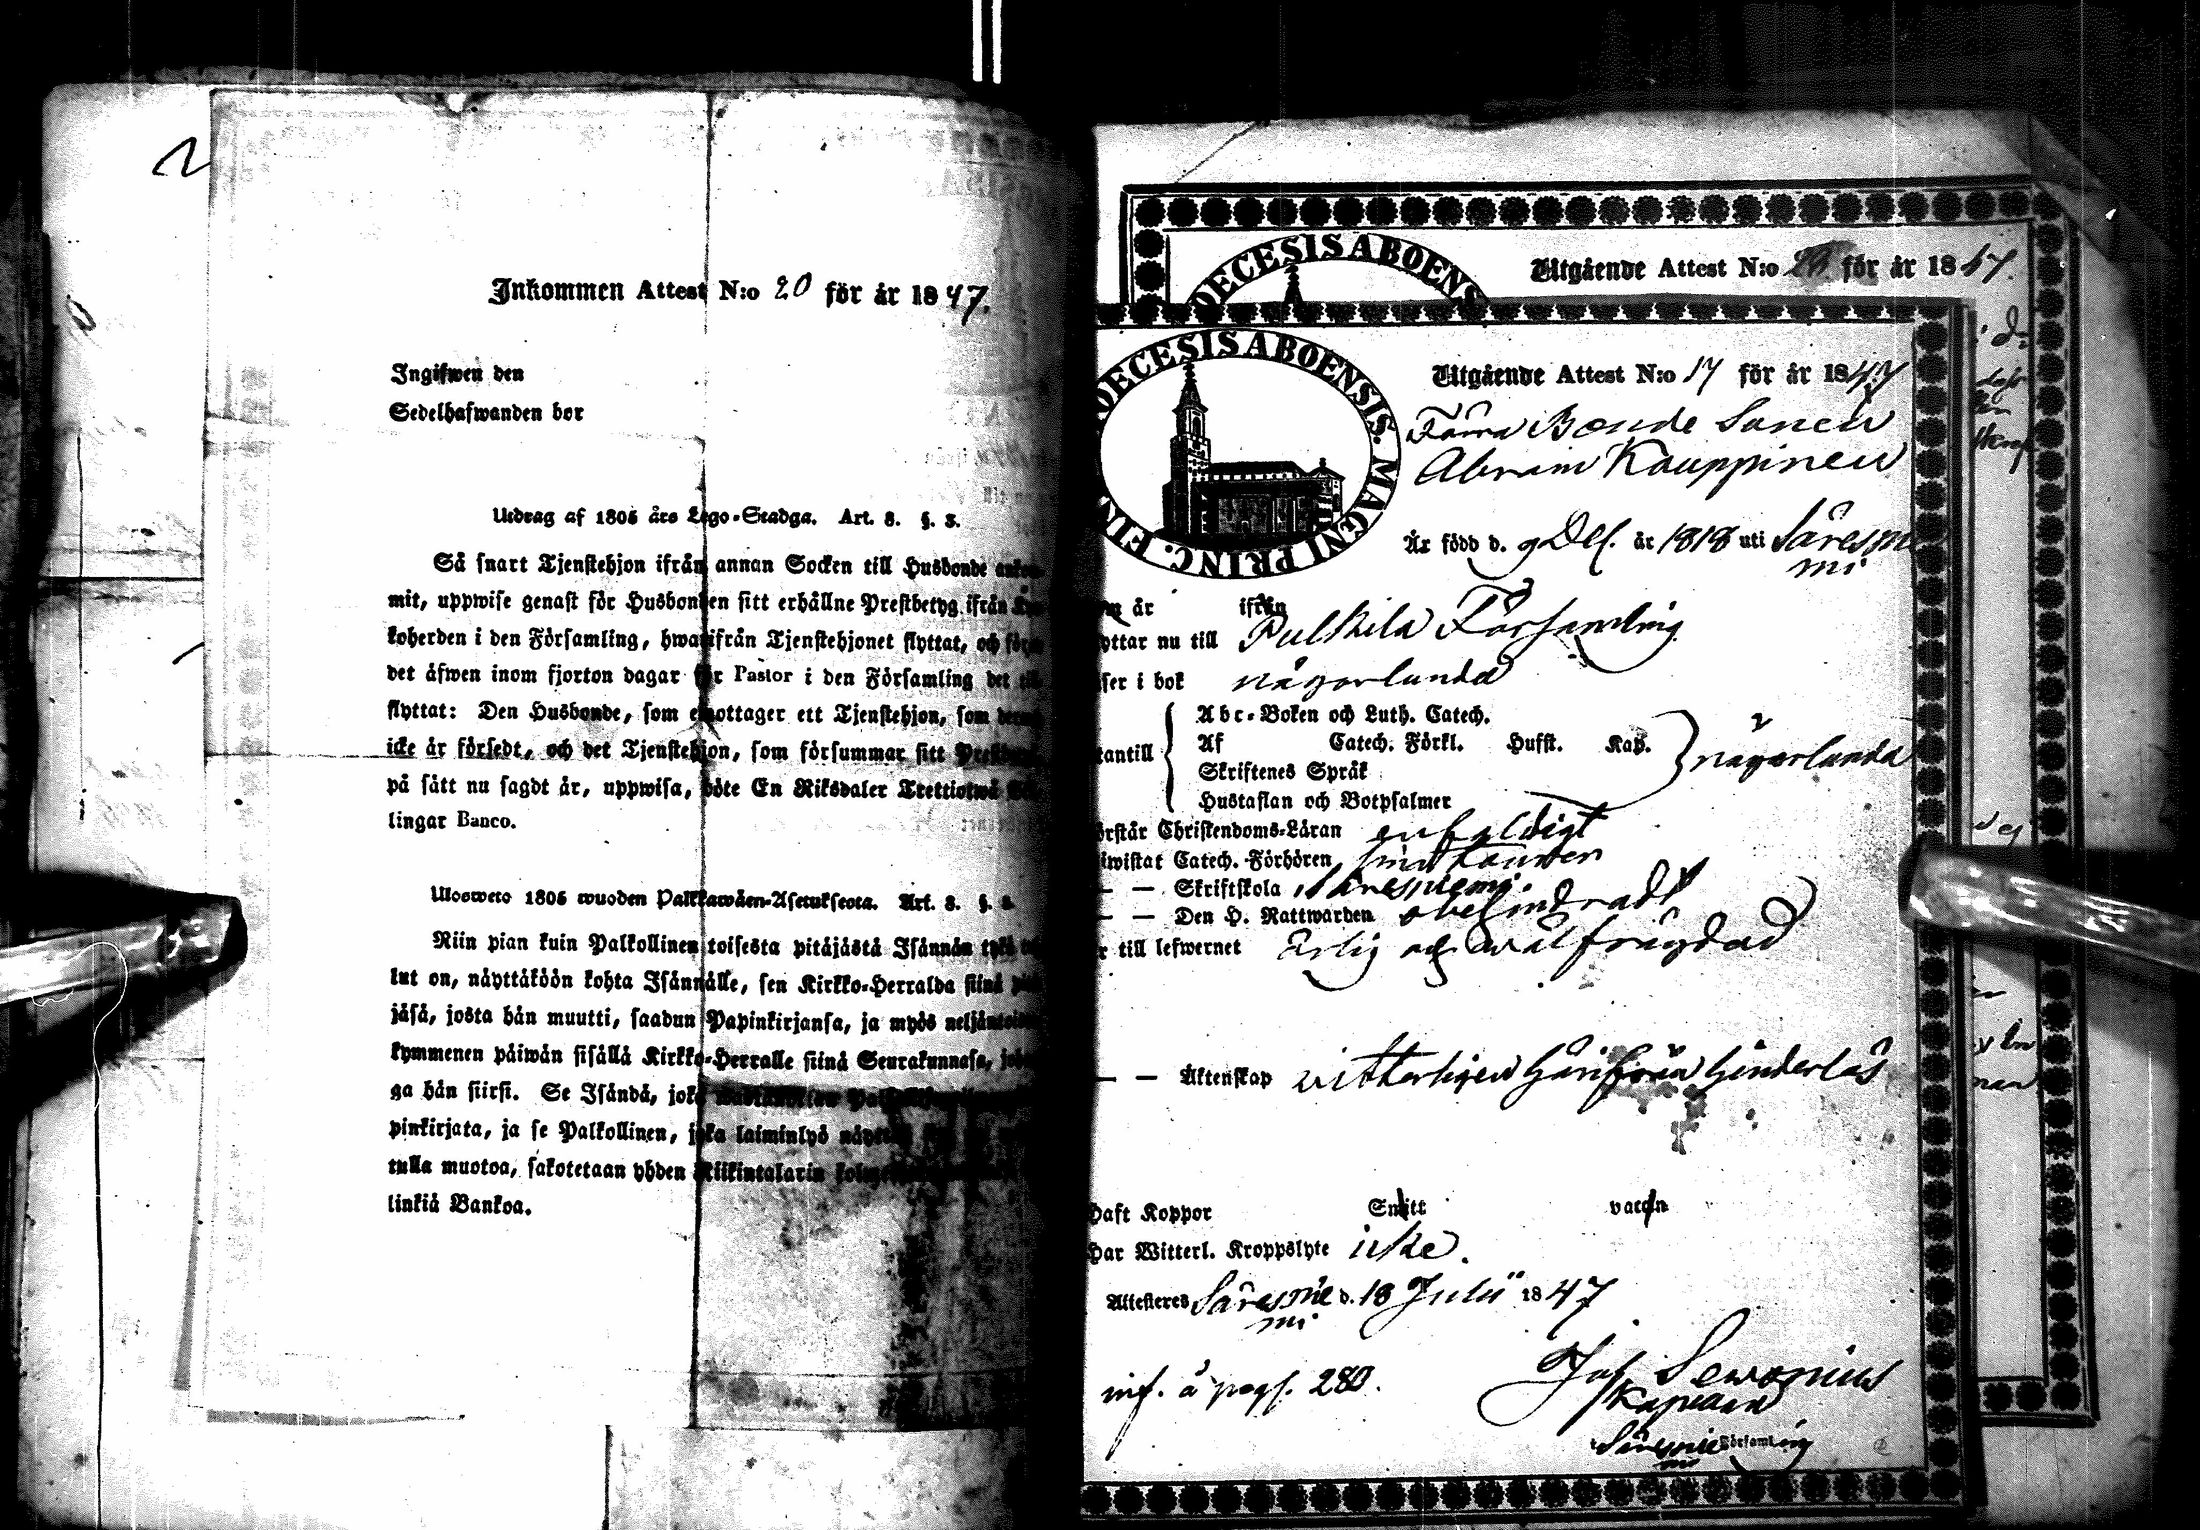 2
Inkommen Attest N:o 20 för år 1847.
Ingifwen den
Sedelhafwanden bor
Utdrag af 1805 års Lego-Stadga. Art. 8. §. 3.
Så snart Tjenstehjon ifrån annan Socken till Husbonde
mit, uppwise genast för Husbonden sitt erhållne Prestbetyg ifrån
koherden i den Församling, hwarifrån Tjenstehjonet flyttat, och
det äfwen inom fjorton dagar för Pastor i den Församling det
flyttat: Den Husbonde, som emottager ett Tjenstehjon, som
icke är försedt, och det Tjenstehjon, som försummar sitt
på sätt nu sagdt är, uppwisa, böte En Riksdaler Trettiotwå
lingar Banco.
Uloswero 1805 wuoden Palkkawäen-Asetuksesta. Art. 8. §.
Niin pian kuin Palkollinen toisesta pitäjästä Isännän
lut on, näyttäköön kohta Isännälle, sen Kirkko-Herralda siinä
jäsä, josta hän muutti, saadun Papinkirjansa, ja myös
kymmenen päiwän sisällä Kirkko-Herralle siinä Seurakunnasa,
ga hän siirsi. Se Isändä, joka
pinkirjata, ja se Palkollinen, joka laiminlyö
tulla muotoa, sakotetaan yhden Riikintalarin
linkiä Bankoa.
DIOECESIS ABOENS
Utgående Attest N:o för år 1847.
DIOECESIS ABOENSIS. MAGNI PRINC. FIN
Utgående Attest N:o 17 för år 1847
Förra Bonde Sonen
Abram Kauppinen
Är född d. 9 Dec. år 1818 uti Säresmä
mi
år ifrån
yttar nu till Pulkila Församling
ser i bok någorlunda
Abc-Boken och Luth. Catech.
Af Catech. Förkl. Husst. Kap.
tantill någorlunda
Skriftenes Språk
Hustaflan och Botpsalmer
örstår Christendoms-Läran enfaldigt
iwistat Catech. Förhören
— — Skriftskola
— — Den H. Nattwarden obehindradt
r till lefwernet Ärlig och wälfrägdad
— — Äktenskap witterligen härifrån hinderlös
Haft Koppor Smitt vaccin
Har Witterl. Kroppslyte icke.
Attesteras Säresnie d. 18 Julii 1847
mi
inf. å pag. 280.
Jos. Sewonius
Kapellan
Säresnie Församling
mi